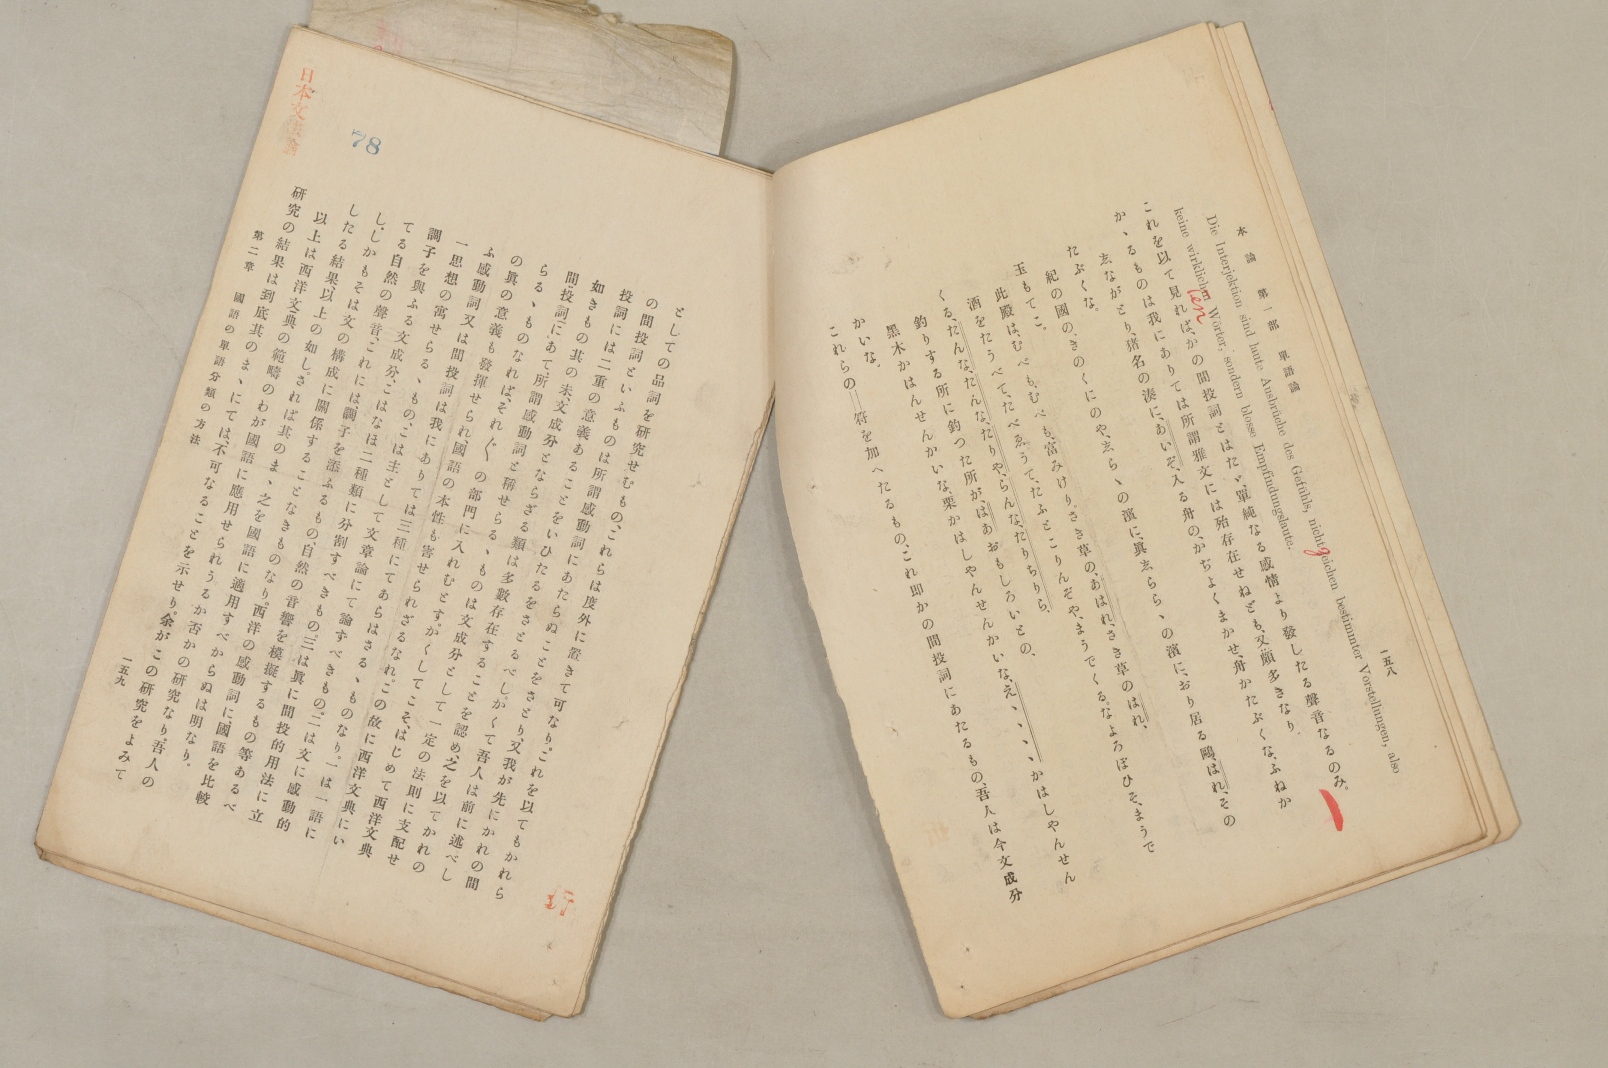 本論　第一部　單語論
一五八
Die Interjektion sind laute Ausbrüche des Gefühls, nicht zeichen bestimmter Vorstellungen, also
keine wirklichen Wörter, sondern blosse Empfindungslaute.
これを以て見れば、かの間投詞とはたゞ單純なる感情より發したる聲音なるのみ。
かゝるものは我にありては所謂雅文には殆存在せねども、又頗多きなり。
ゑながとり、猪名の湊に、あいぞ、入る舟の、かぢよくまかせ、舟かたぶくな、ふねか
たぶくな。
紀の國の、きのくにのや、ゑらゝの濱に、眞ゑらゝの濱に、おり居る鷗、はれ、その
玉もてこ。
此殿は、むべも、むべも、富みけり。さき草の、あはれ、さき草の、はれ、
酒をたうべて、たべゑうて、たふとこりんぞや、まうでくる。なよろぼひそ、まうで
くる、たんな、たんな、たりや、らんな、たりちりら、
釣りする所に釣つた所が、はあおもしろいとの、
黑木かはんせんかいな、栗かはしやんせんかいな、え、、、、かはしやんせん
かいな。
これらの＝符を加へたるもの、これ即かの間投詞にあたるもの、吾人は今文成分
としての品詞を研究せむもの、これらは度外に置きて可なり。これを以てもかれら
の間投詞といふものは所謂感動詞にあたらぬことをさとり、又我が先にかれの間
投詞には二重の意義あることをいひたるをさとるべし。かくて吾人は前に述べし
如きもの其の未、文成分とならざる類は多數存在することを認め、之を以てかれの
間投詞にあて、所謂感動詞と稱せらるゝものは文成分として一定の法則に支配せ
らるゝものなれば、それ〲の部門に入れむとす。かくしてこそ、はじめて西洋文典
の眞の意義も發揮せられ、國語の本性も害せられざるなれ。この故に西洋文典にい
ふ感動詞又は間投詞は我にありては三種にてあらはさるゝものなり。一は一語に
一思想の寓せらるゝもの、こは主として文章論にて論ずべきもの。二は文に感動的
調子を與ふる文成分、こはなほ二種類に分割すべきもの。三は眞に間投的用法に立
てる自然の聲音、これには調子を添ふるもの、自然の音響を模擬するもの等あるべ
し、しかもそは文の構成に關係することなきものなり。西洋の感動詞に國語を比較
したる結果、以上の如し。されば其のまゝ之を國語に適用すべからぬは明なり。
以上は西洋文典の範疇のわが國語に應用せられうるか否かの研究なり。吾人の
研究の結果は到底其のまゝにては、不可なることを示せり。余がこの研究をよみて
第二章　國語の單語分類の方法
一五九
78